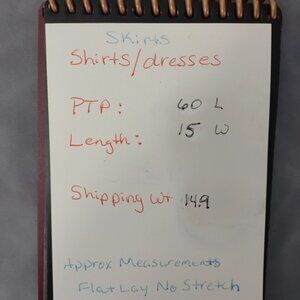 Skirts
Shirts/dresses
PTP: 60 L
Length: 15 W
Shipping wt 14.9
Approx Measurements
Flat Lay No Stretch